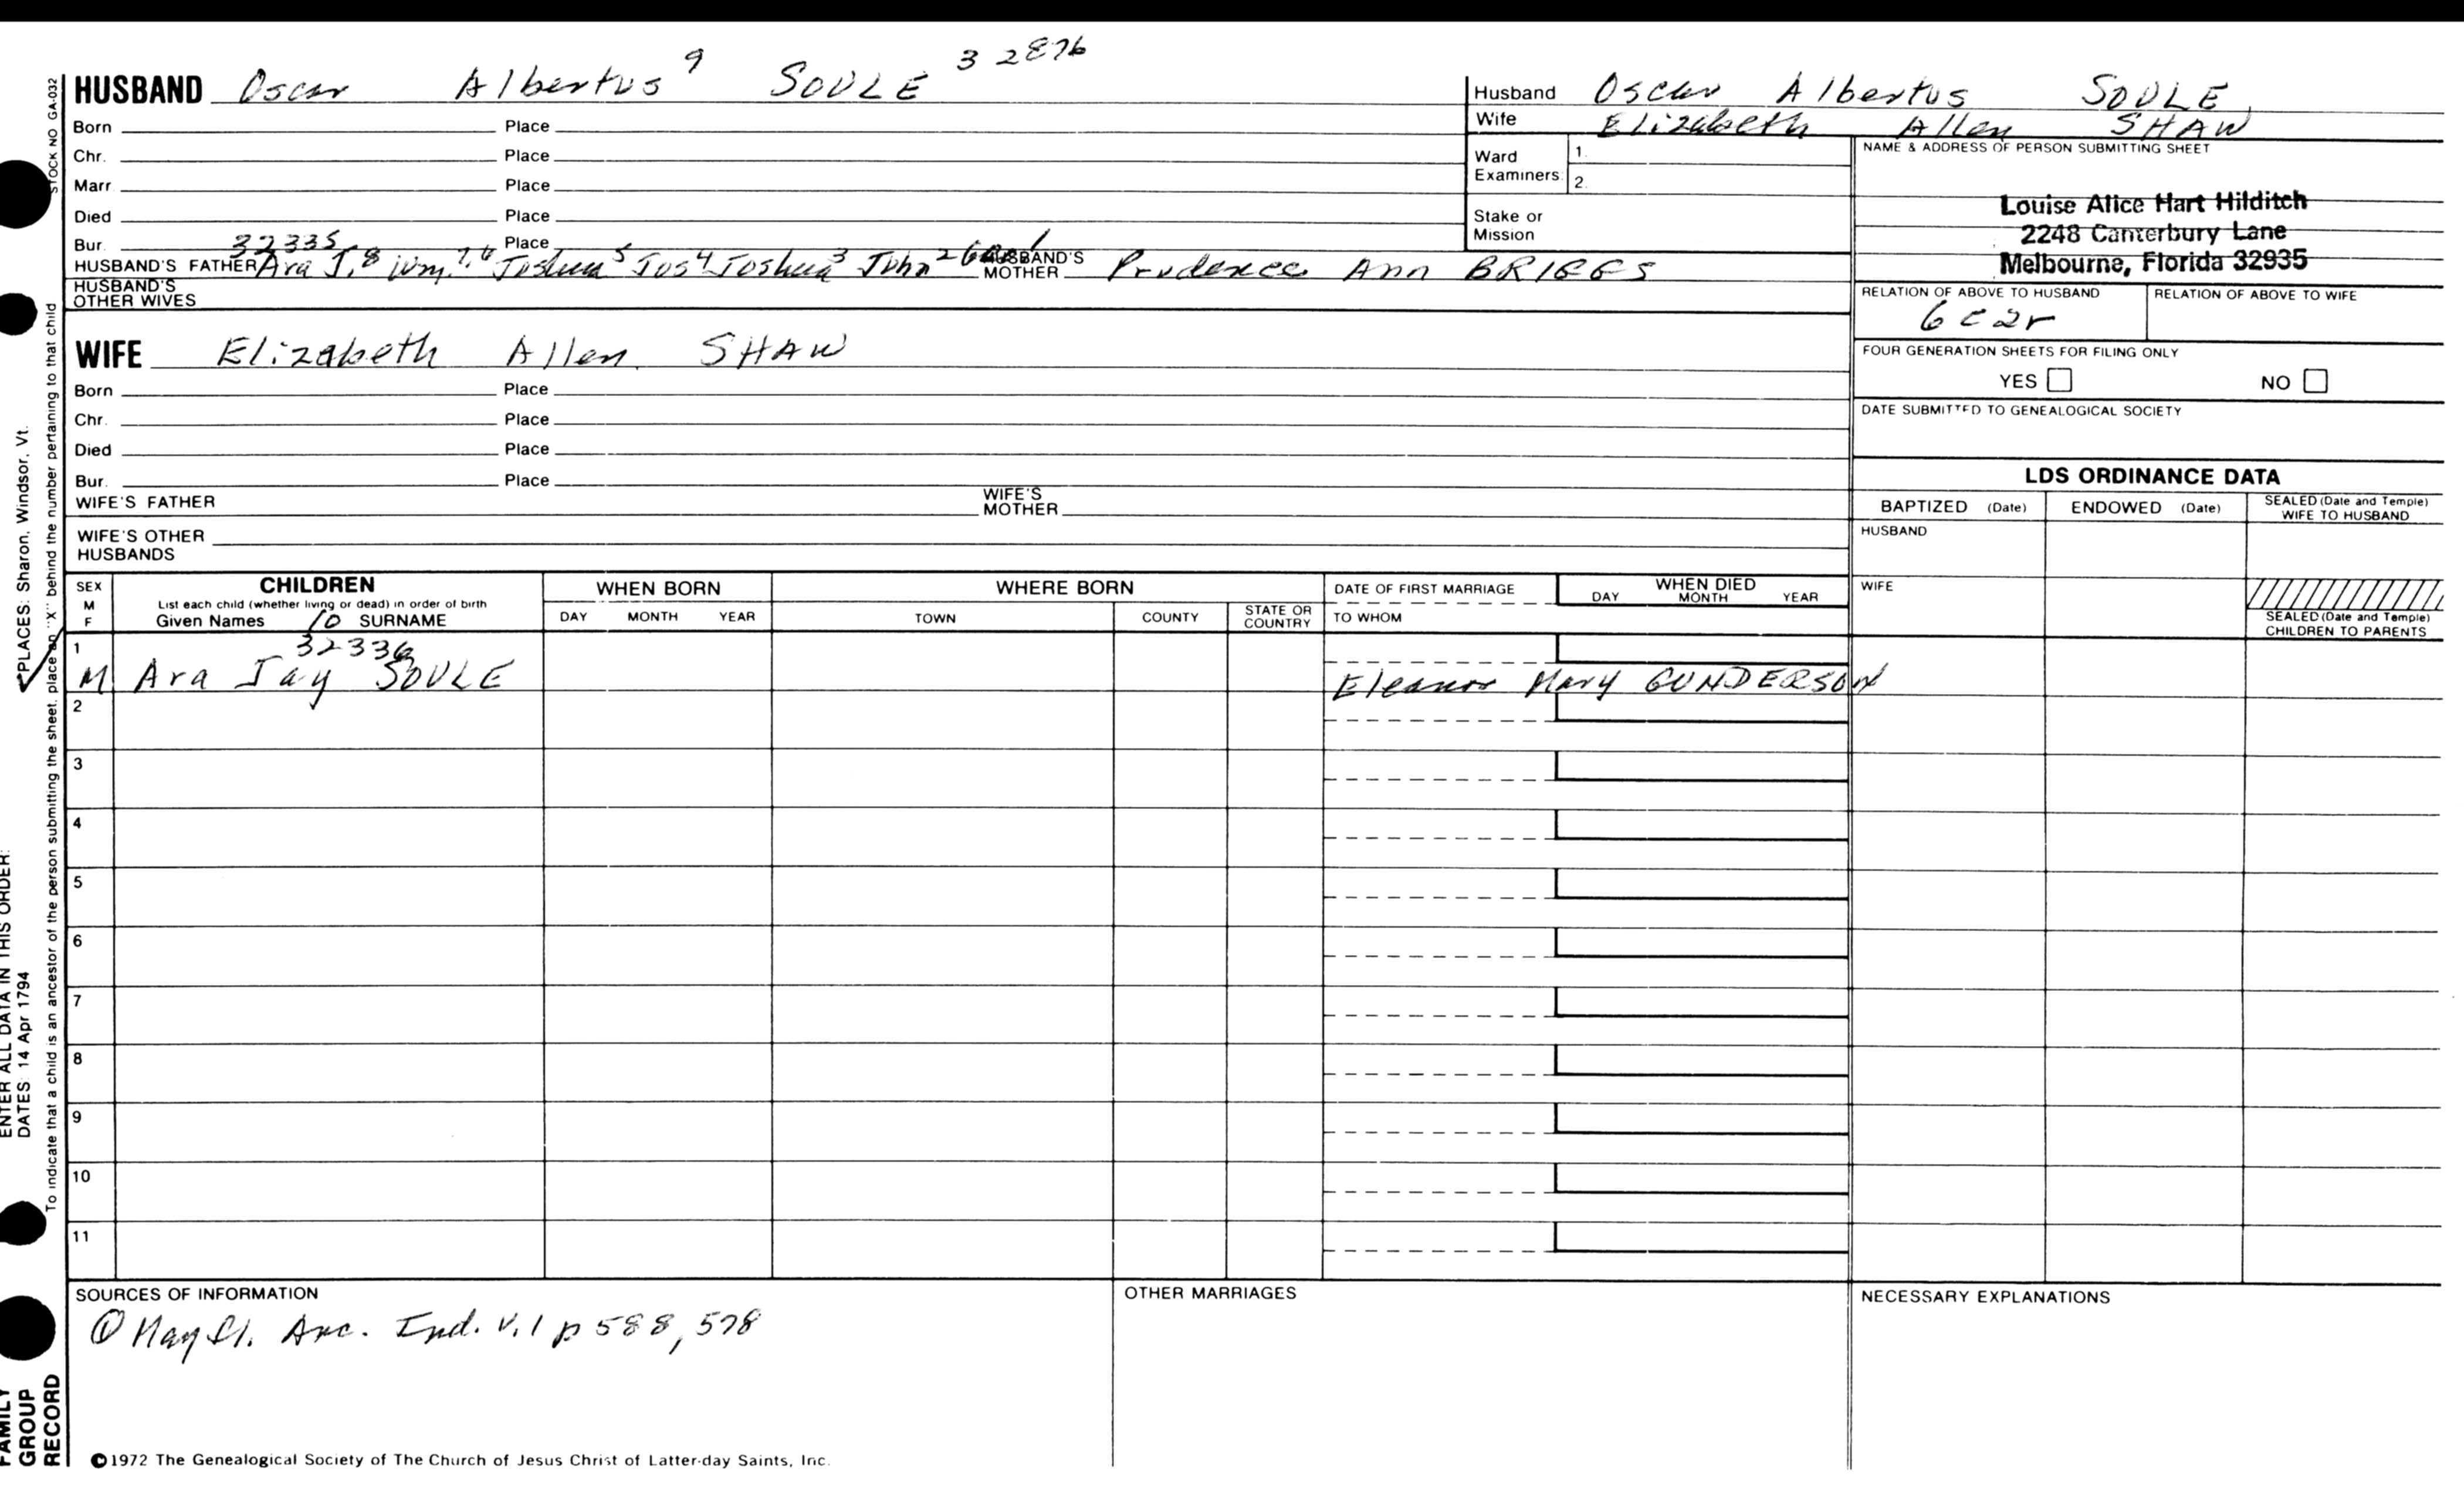 HUSBAND Oscar Albertus 9 SOULE 32876
Born Place
Chr. Place
Marr. Place
Died Place
Bur. Place
32335
HUSBAND'S FATHER Ara J.8 Wm.7,6 Joshua5 Jos4 Joshua3 John2 1 HUSBAND'S MOTHER Prudence Ann BRIGGS
HUSBAND'S OTHER WIVES
WIFE Elizabeth Allen SHAW
Born Place
Chr. Place
Died Place
Bur. Place
WIFE'S FATHER WIFE'S MOTHER
WIFE'S OTHER HUSBANDS
Husband Oscar Albertus SOULE
Wife Elizabeth Allen SHAW
Ward Examiners: 1.
2.
Stake or Mission
NAME & ADDRESS OF PERSON SUBMITTING SHEET
Louise Alice Hart Hilditch
2248 Canterbury Lane
Melbourne, Florida 32935
RELATION OF ABOVE TO HUSBAND RELATION OF ABOVE TO WIFE
6c2r
FOUR GENERATION SHEETS FOR FILING ONLY
YES NO
DATE SUBMITTED TO GENEALOGICAL SOCIETY
LDS ORDINANCE DATA
BAPTIZED (Date) ENDOWED (Date) SEALED (Date and Temple) WIFE TO HUSBAND
HUSBAND
WIFE
SEALED (Date and Temple) CHILDREN TO PARENTS
SEX M F
CHILDREN
List each child (whether living or dead) in order of birth
Given Names 10 SURNAME
WHEN BORN
DAY MONTH YEAR
WHERE BORN
TOWN COUNTY STATE OR COUNTRY
DATE OF FIRST MARRIAGE
TO WHOM
WHEN DIED
DAY MONTH YEAR
1 32336
M Ara Jay SOULE Eleanor Mary GUNDERSON
2
3
4
5
6
7
8
9
10
11
SOURCES OF INFORMATION
① Mayfl. Anc. Ind. V.1 p 588, 578
OTHER MARRIAGES
NECESSARY EXPLANATIONS
©1972 The Genealogical Society of The Church of Jesus Christ of Latter-day Saints, Inc.
STOCK NO GA-032
To indicate that a child is an ancestor of the person submitting the sheet, place an "X" behind the number pertaining to that child
PLACES: Sharon, Windsor, Vt.
ENTER ALL DATA IN THIS ORDER:
DATES 14 Apr 1794
FAMILY
GROUP
RECORD